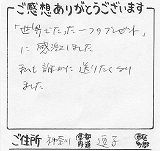 ご感想ありがとうございます
「世界でただ一つのプレゼント」
に感激しました。
私も誰かに送りたくなり
ました。
ご住所 神奈川 都道府県 逗子